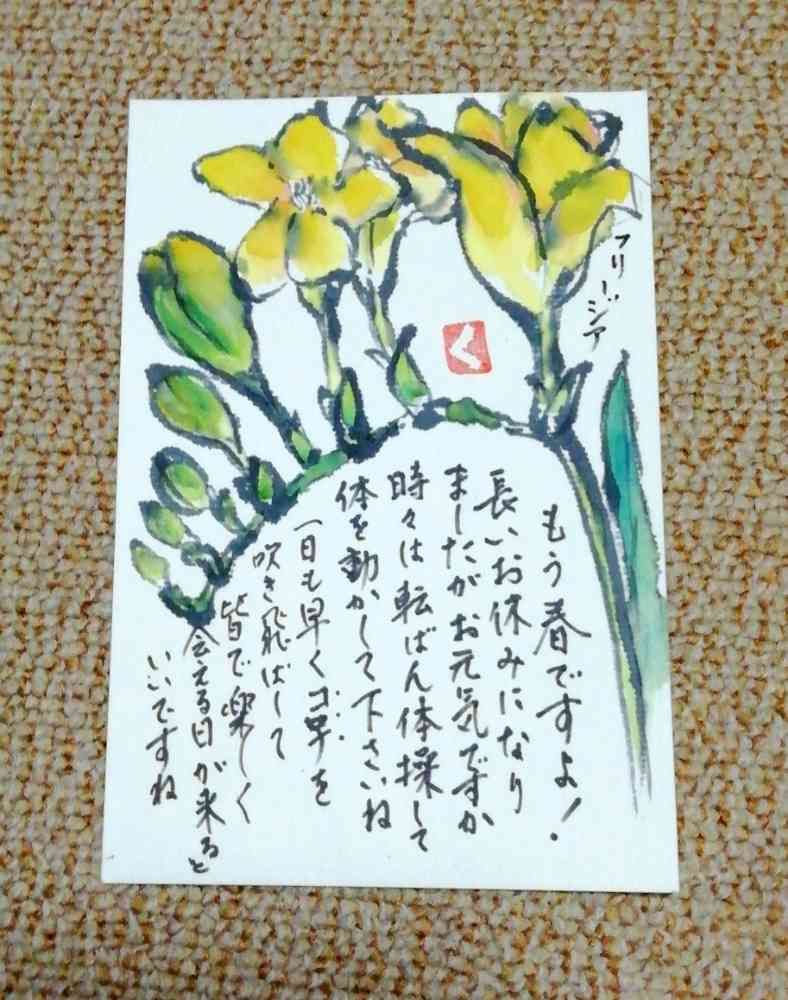 フリージア
く
もう春ですよ!
長いお休みになり
ましたがお元気ですか
時々は転ばん体操して
体を動かして下さいね
一日も早くコロナを
吹き飛ばして
皆で楽しく
会える日が来ると
いいですね